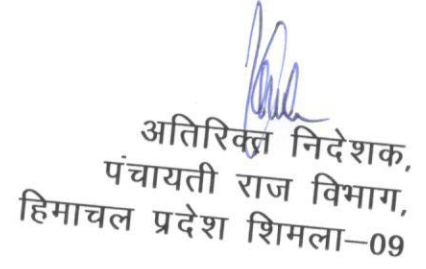 अतिरिक्त निदेशक,
पंचायती राज विभाग,
हिमाचल प्रदेश शिमला–09